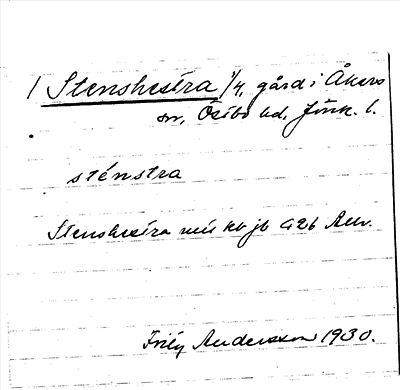 1 Stenshestra 1/4, gård i Åkers
sn, Östbo hd, Jönk. l.
sténstra
Stenshestra mis kv jb 426 Anv.
Andersson 1930.